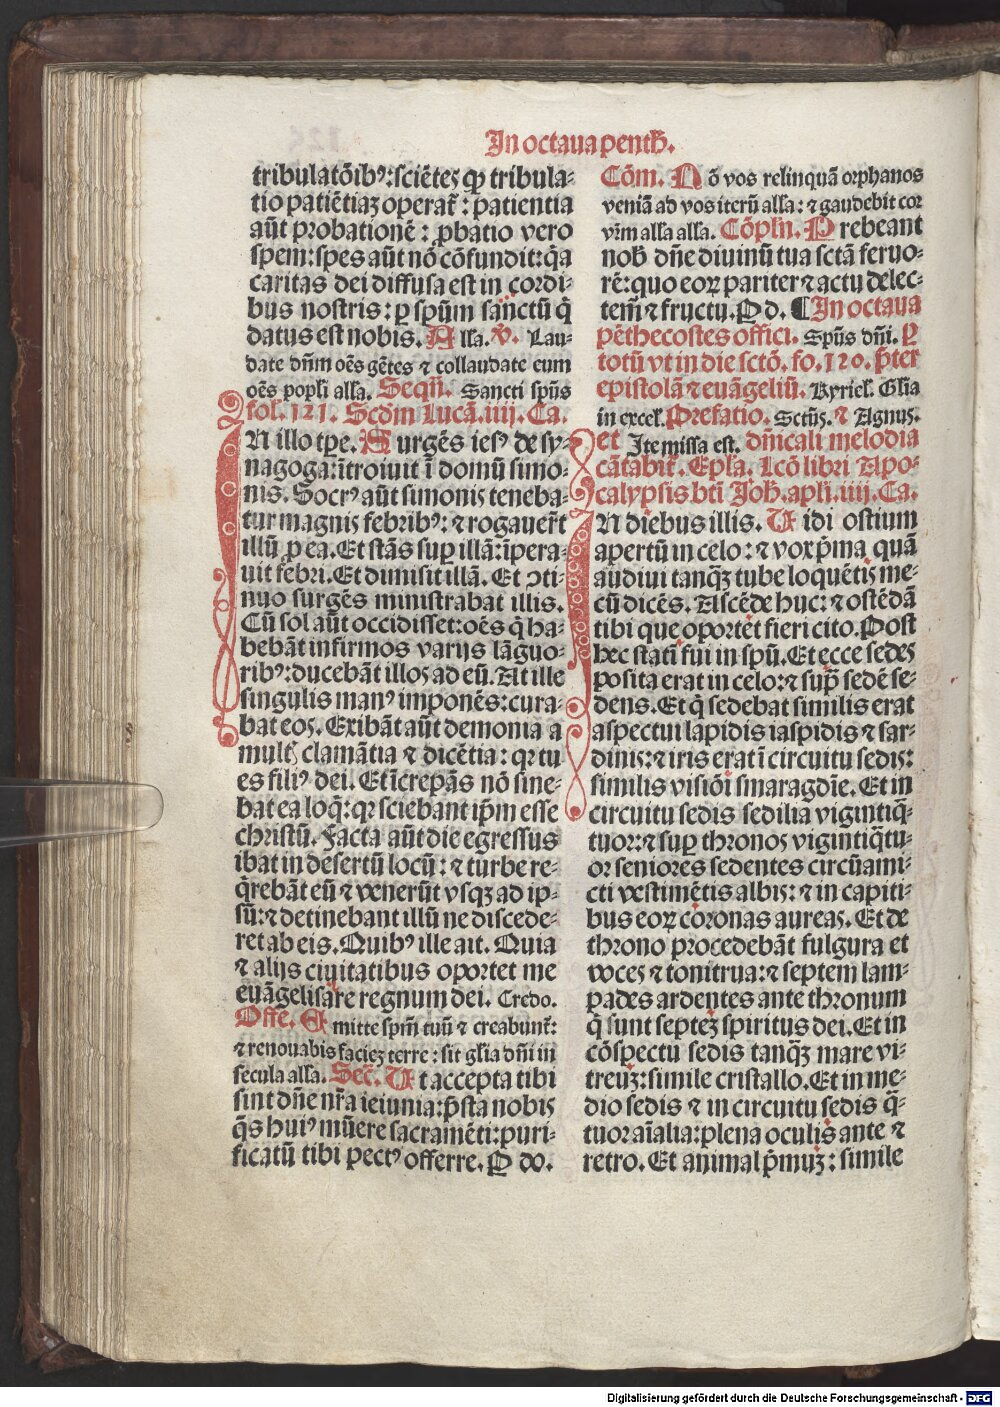 In octaua penth̄.
tribulatōibꝰ: sciētes ꝙ tribula⸗
tio patiētiaʒ operat̄: patientia
aūt probationē: ꝓbatio vero
spem: spes aūt nō cōfundit: q̄a
caritas dei diffusa est in cordi⸗
bus nostris: ꝑ spūm sanctū q̄
datus est nobis. Alla. ℣. Lau⸗
date dn̄m oēs gētes ⁊ collaudate eum
oēs popl̄i alla. Seqn̄. Sancti spūs
fol. 121. Scdm̄ Lucā. iiij. Ca.
IN illo tp̄e. Surgēs iesꝰ de sy⸗
nagoga: ītroiuit ī domū simo⸗
nis. Socrꝰ aūt simonis teneba⸗
tur magnis febribꝰ: ⁊ rogauer̄t
illū ꝓ ea. Et stās suꝑ illā: īpera⸗
uit febri. Et dimisit illā. Et ↄti⸗
nuo surgēs ministrabat illis.
Cū sol aūt occidisset: oēs q̄ ha⸗
bebāt infirmos varijs lāguo⸗
ribꝰ: ducebāt illos ad eū. At ille
singulis manꝰ imponēs: cura⸗
bat eos. Exibāt aūt demonia a
mult clamātia ⁊ dicētia: qꝛ tu
es filiꝰ dei. Et īcrepās nō sine⸗
bat ea loq̄: qꝛ sciebant ip̄m esse
christū. Facta aūt die egressus
ibat in desertū locū: ⁊ turbe re⸗
q̄rebāt eū ⁊ venerūt vsqʒ ad ip⸗
sū: ⁊ detinebant illū ne discede⸗
ret ab eis. Quibꝰ ille ait. Quia
⁊ alijs ciuitatibus oportet me
euāgelisare regnum dei. Credo.
Offe. Emitte spm̄ tuū ⁊ creabunt̄:
⁊ renouabis faciez terre: sit gl̄ia dn̄i in
secula alla. Sec̄. Ut accepta tibi
sint dn̄e nr̄a ieiunia: p̄sta nobis
q̄s huiꝰ mūere sacramēti: puri⸗
ficatū tibi pectꝰ offerre. P do.
Cōm. Nō vos relinquā orphanos
veniā ad vos iterū alla: ⁊ gaudebit cor
vr̄m alla alla. Cōpln̄. Prebeant
nob̄ dn̄e diuinū tua sctā feruo⸗
rē: quo eoꝝ pariter ⁊ actu delec⸗
tem̄ ⁊ fructu. P d. ¶ In octaua
pēthecostes offici. Spūs dn̄i. P
totū vt in die sctō. fo. 120. p̄ter
epistolā ⁊ euāgeliū. Kyriel. Gl̄ia
in excel. Prefatio. Sctūs. ⁊ Agnus.
et Ite missa est. dn̄icali melodia
cātabit̄. Epl̄a. Lcō libri Apo⸗
calypsis bt̄i Joh̄. apl̄i. iiij. Ca.
IN diebus illis. Uidi ostium
apertū in celo: ⁊ vox p̄ma quā
audiui tanqʒ tube loquētis me⸗
cū dicēs. Ascēde huc: ⁊ ostēdā
tibi que oportet fieri cito. Post
hec stati fui in spū. Et ecce sedes
posita erat in celo: ⁊ sup̄ sedē se⸗
dens. Et q̄ sedebat similis erat
aspectui lapidis iaspidis ⁊ sar⸗
dinis: ⁊ iris erat ī circuitu sedis:
similis visiōi smaragdīe. Et in
circuitu sedis sedilia vigintiq̄⸗
tuor: ⁊ suꝑ thronos vigintiq̄tu⸗
or seniores sedentes circūami⸗
cti vestimētis albis: ⁊ in capiti⸗
bus eoꝝ coronas aureas. Et de
throno procedebāt fulgura et
voces ⁊ tonitrua: ⁊ septem lam⸗
pades ardentes ante thronum
q̄ sunt septeʒ spiritus dei. Et in
cōspectu sedis tanqʒ mare vi⸗
treuʒ: simile cristallo. Et in me⸗
dio sedis ⁊ in circuitu sedis q̄⸗
tuor aīalia: plena oculis ante ⁊
retro. Et animal p̄muʒ: simile
Digitalisierung gefördert durch die Deutsche Forschungsgemeinschaft - DFG